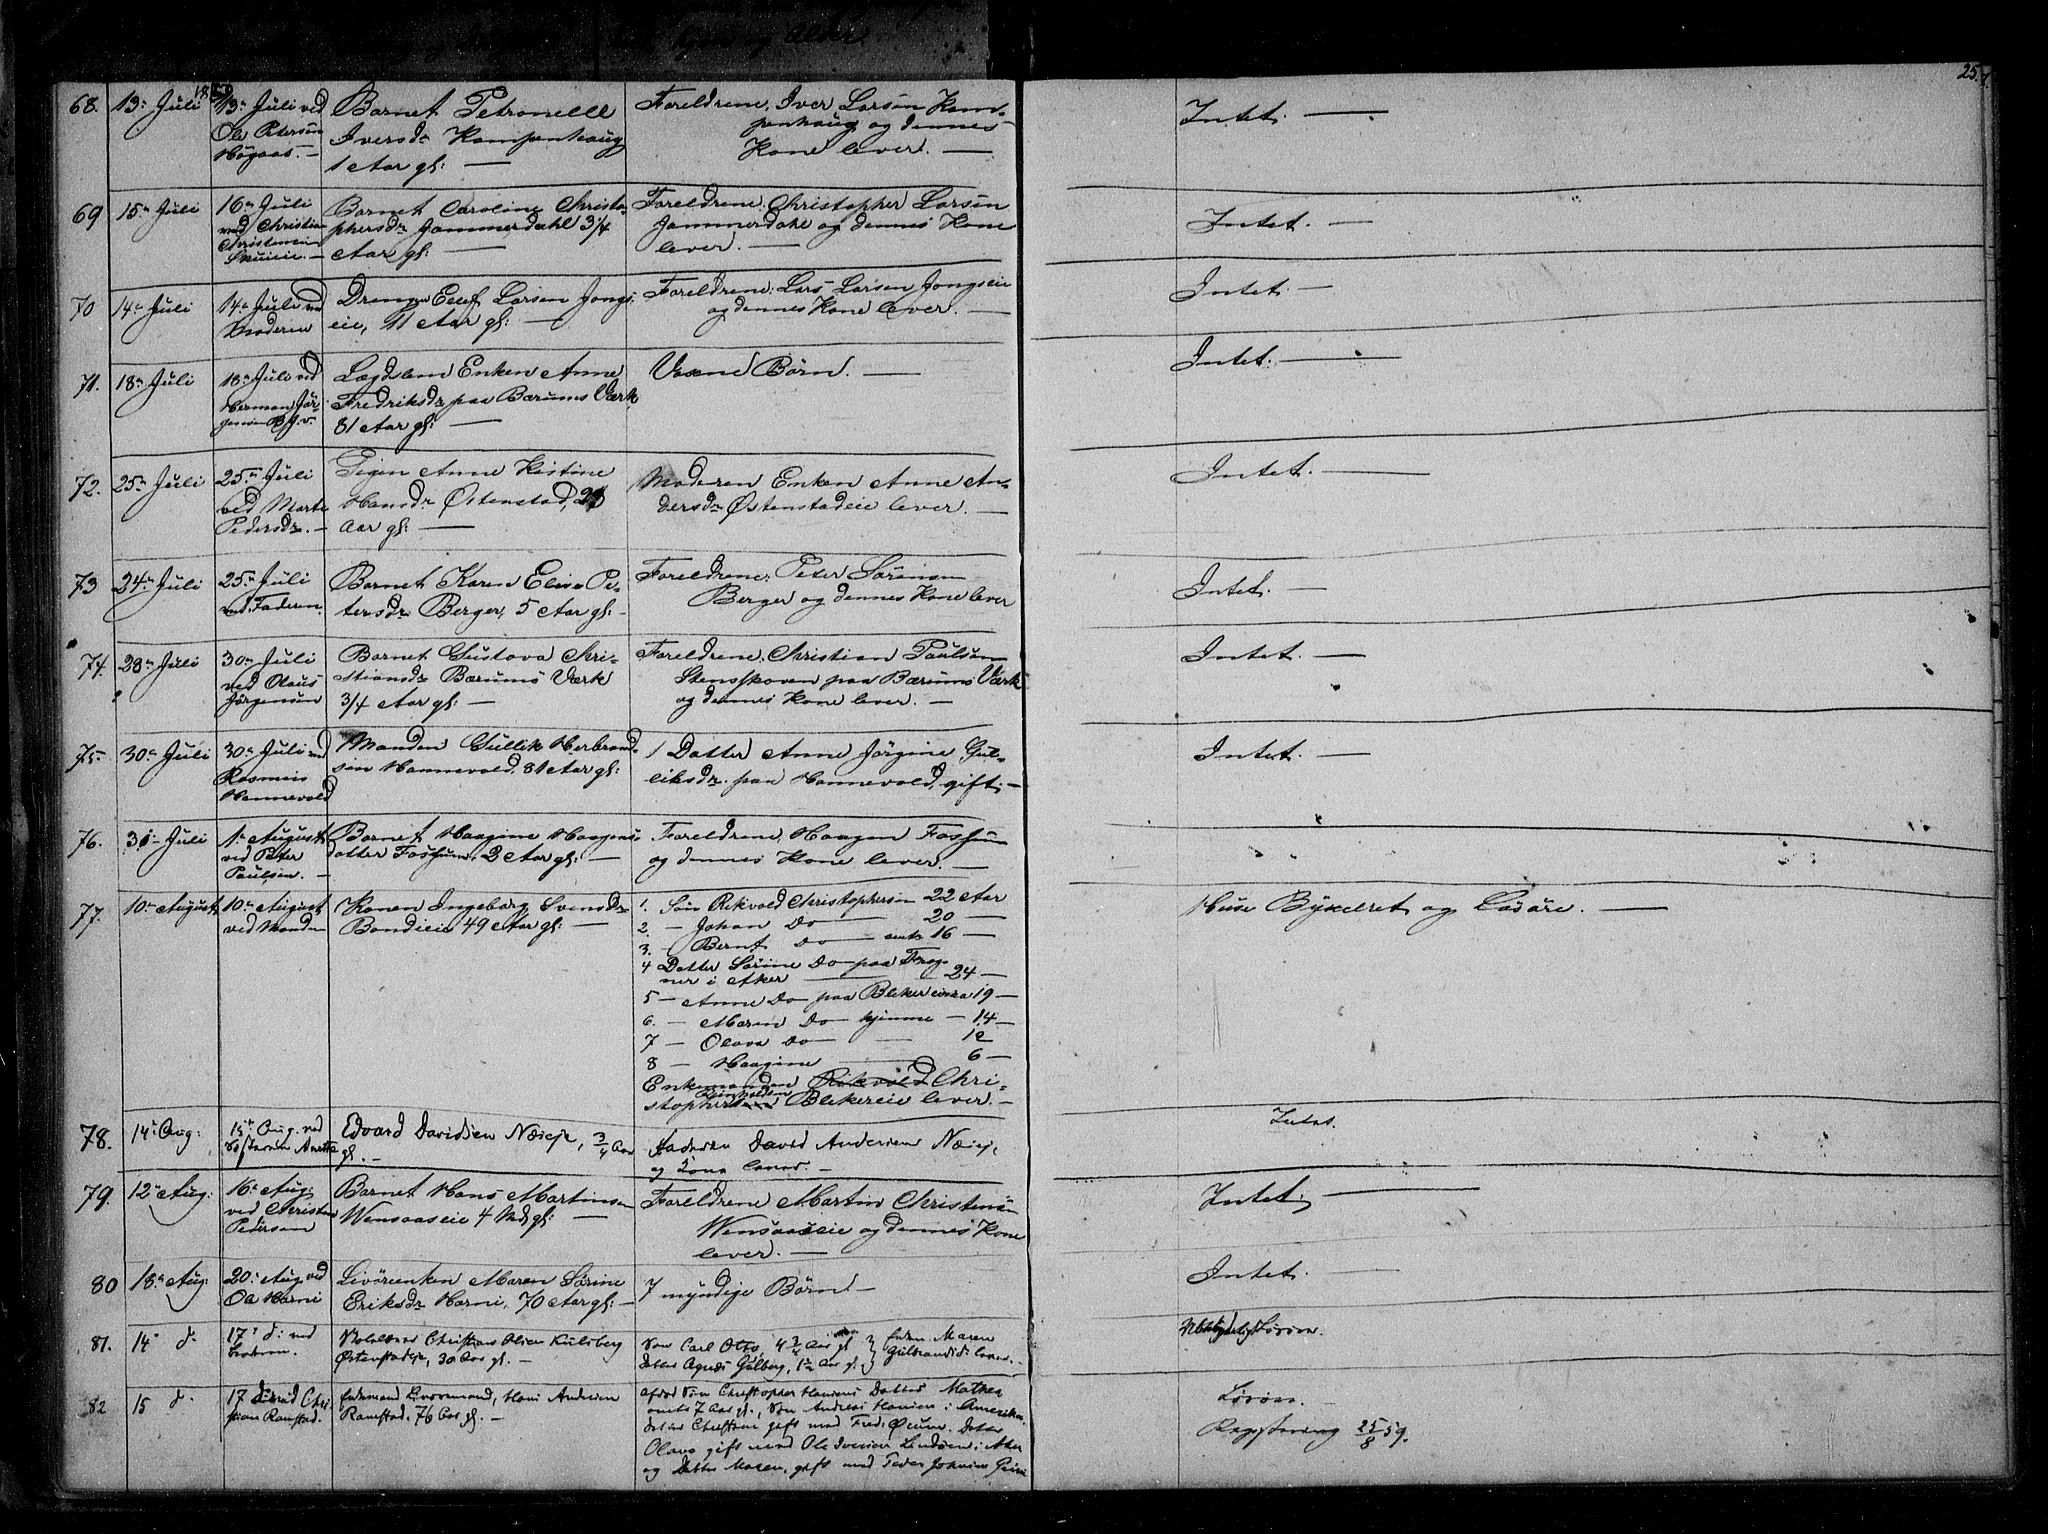 25.
68. 13 Juli 13 Juli ved Barnet Petronelle Foreldrene, Iver Larsen Kam- Intet. —
Ole Petersen Iversdr Kampenhaug penhaug og dennes
Høgaas. — 1 Aar gl: — Kone lever. —
69 15 Juli 16 Juli Barnet Caroline Christo- Foreldrene, Christopher Larsen Intet. —
ved Christian phersdr Jammerdahl 3/4 Jammerdahl og dennes Kone
Christensen Aar gl: — lever. —
70 14 Juli 14 Juli ved Drengen Ellef Larsen Jongs- Foreldrene: Lars Larsen Jongseie Intet. —
Moderen eie, 11 Aar gl: — og dennes Kone lever. —
71. 18 Juli 18 Juli ved Lægdslem Enken Anne Voxne Børn. — Intet. —
Herman Jør- Fredriksdr paa Bærums Værk
gensen B.V. 81 Aar gl: —
72. 25 Juli 25 Juli Pigen Anne Kistine Moderen Enken Anne An- Intet. —
ved Marte Hansdr Østenstad,
Pedersdr. — Aar gl: — dersdr Østenstadeie lever. —
73 24 Juli 25 Juli Barnet Karen Elise Pe- Foreldrene: Peter Sørensen Intet. —
ved Faderen. tersdr Berger, 5 Aar gl. — Berger og dennes Kone lever
74. 28 Juli 30 Juli Barnet Gustava Chri- Foreldrene: Christian Paulsen Intet. —
ved Olaus stiansdr Bærums Værk Stensskoven paa Bærums Værk
Jørgensen 3/4 Aar gl: — og dennes Kone lever. —
75 30 Juli 30 Juli ved Manden Gullik Herbrand- 1 Datter Anne Jørgine Gul- Intet. —
Rasmus sen Hannevold, 81 Aar gl: leiksdr. paa Hannevold, gift. —
Hannevold
76. 31 Juli 1 August Barnet Haagine Haagens- Foreldrene, Haagen Fossum
ved Peter datter Fossum, 2 Aar gl: — og dennes Kone lever. —
Paulsen. —
77. 10 August 10 August Konen Ingeborg Svensdr 1. Søn Rikvold Christophersen 22 Aar Huse Bÿxelret og Løsøre. —
ved Manden Bondieie 49 Aar gl: — 2. — Johan Do — 20 —
3. — Bernt Do — 16 —
4 Datter Sørine Do paa Frog-
ner i Aker — 24 —
5 — Anne Do paa Bleker circa 19 —
6. — Maren Do hjemme — 14 —
7 — Olava Do — 12
8 — Haagine — 6 —
Enkemanden Rikvold Chri-
stophersen Blekereie lever. —
78. 14 Aug: 15 Aug. ved Edvard Davidsen Næseje, 3/4 Aar David Andersen Næseje, Intet.
Anette gl. — og Kone lever. —
79. 12 Aug: 16 Aug: Barnet Hans Martinsen Foreldrene Martin Christensen Intet. —
ved Christen Wensaaseie 4 Md gl: — Wensaaseie og dennes Kone
Pedersen lever. —
80 18 Aug: 20 Aug ved Livøreenken Maren Sørine 7 myndige Børn — Intet. —
Ole Horni Eriksdr Horni, 70 Aar gl: —
81. 14 d: 17 d: ved Christian Olsen Kulsberg Søn Carl Otto, 4 3/4 Aar gl } Enken Maren Løsøre.
Broderen. Østenstadeje, 30 Aar gl. — Datter Agnes Gulborg, 1 1/2 Aar gl. } Gulbrandsd. lever. —
82 15 d. 17 d: ved Chri- Enkemand Livøremand, Hans Andersen afdød Søn Christopher Hansens Datter Mathea Løsøre. —
stian Ramstad. Ramstad, 76 Aar gl. — 7 Aar gl., Søn Andreas Hansen i Amerika. Registrering 25/8 59.
Datter Christine gift med Fred. Datter
Olava gift med Ole Iversen i Aker
og Datter Maren, gift med Peder Johnsen